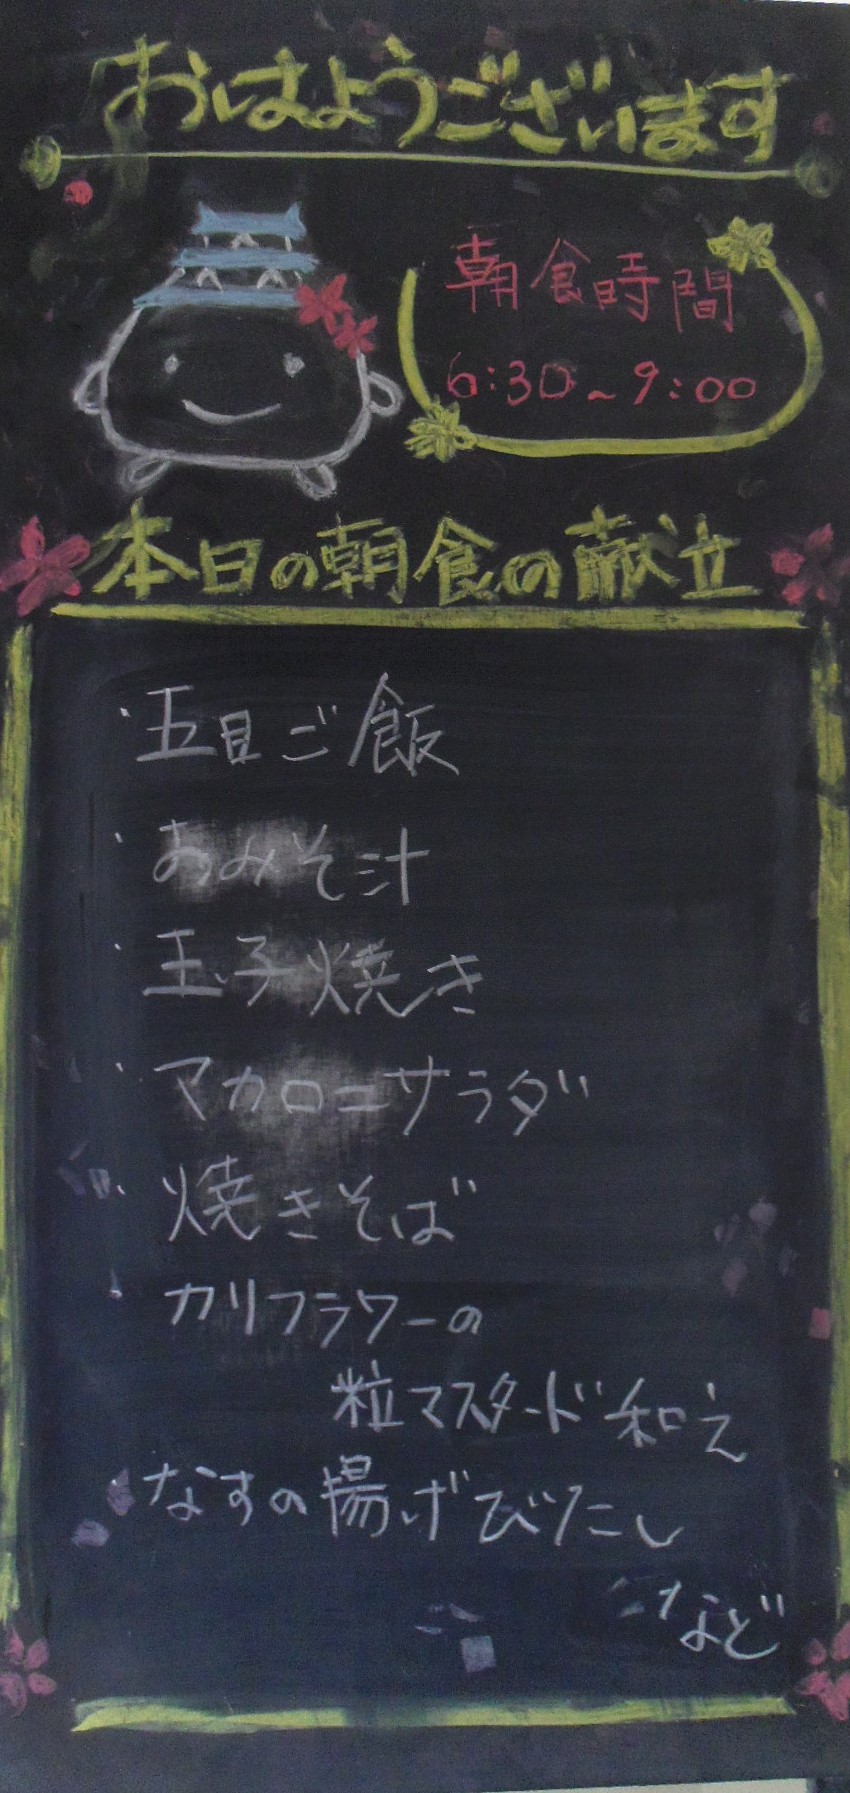 おはようございます
朝食時間
6:30~9:00
本日の朝食の献立
・五目ご飯
・おみそ汁
・玉子焼き
・マカロニサラダ
・焼きそば
・カリフラワーの
粒マスタード和え
・なすの揚げびたし
など